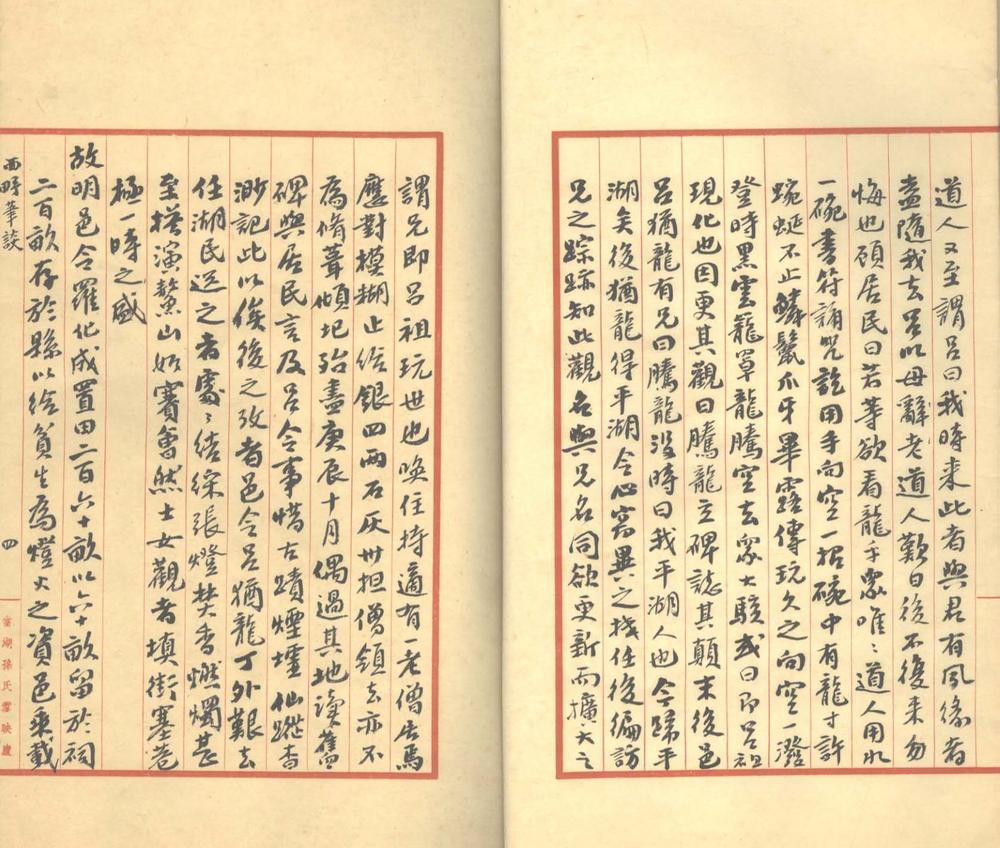 道人又至謂呂曰我時来此者與君有夙緣者
盍隨我去呂以母辭老道人歎曰後不復来勿
悔也顧居民曰若等欲看龍乎衆唯〻道人用水
一碗書符誦咒訖用手向空一招碗中有龍寸許
蜿蜒不止鱗鬣爪牙畢露傳玩久之向空一潑
登時黑雲籠罩龍騰空去衆大駭或曰即呂祖
現化也因更其觀曰騰龍立碑誌其顛末後邑
呂猶龍有兄曰騰龍没時曰我平湖人也今歸平
湖矣後猶龍得平湖令心窃異之抵任後徧訪
兄之踪跡知此觀名與兄名同欲更新而擴大之
謂兄即呂祖玩世也喚住持適有一老僧居焉
應對模糊止給銀四兩石灰卅担僧領去亦不
為脩葺傾圯殆盡庚辰十月偶過其地讀舊
碑與居民言及呂令事惜古蹟煙壜仙蹤杳
渺記此以俟後之攷者邑令呂猶龍丁外艱去
任湖民送之者處〻結綵張燈焚香燃燭甚
至搭演鰲山如賽會然士女觀者填街塞巷
極一時之盛
故明邑令羅化成置田二百六十畝以六十畝留於祠
二百畝存於縣以給貧生為燈火之資邑乘載
西畴筆談
四
孫氏雪映廬